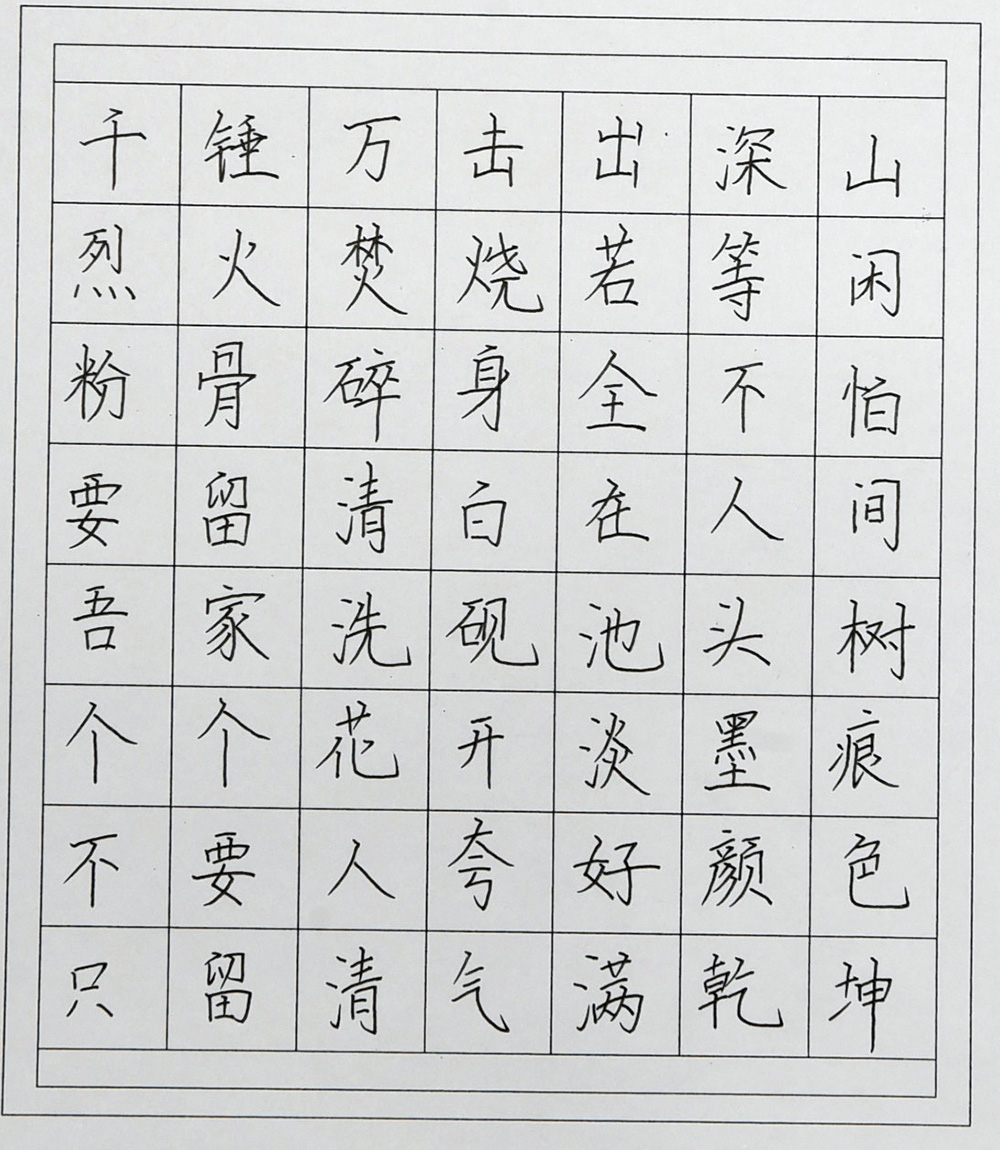 千锤万击出深山
烈火焚烧若等闲
粉骨碎身全不怕
要留清白在人间
吾家洗砚池头树
个个花开淡墨痕
不要人夸好颜色
只留清气满乾坤